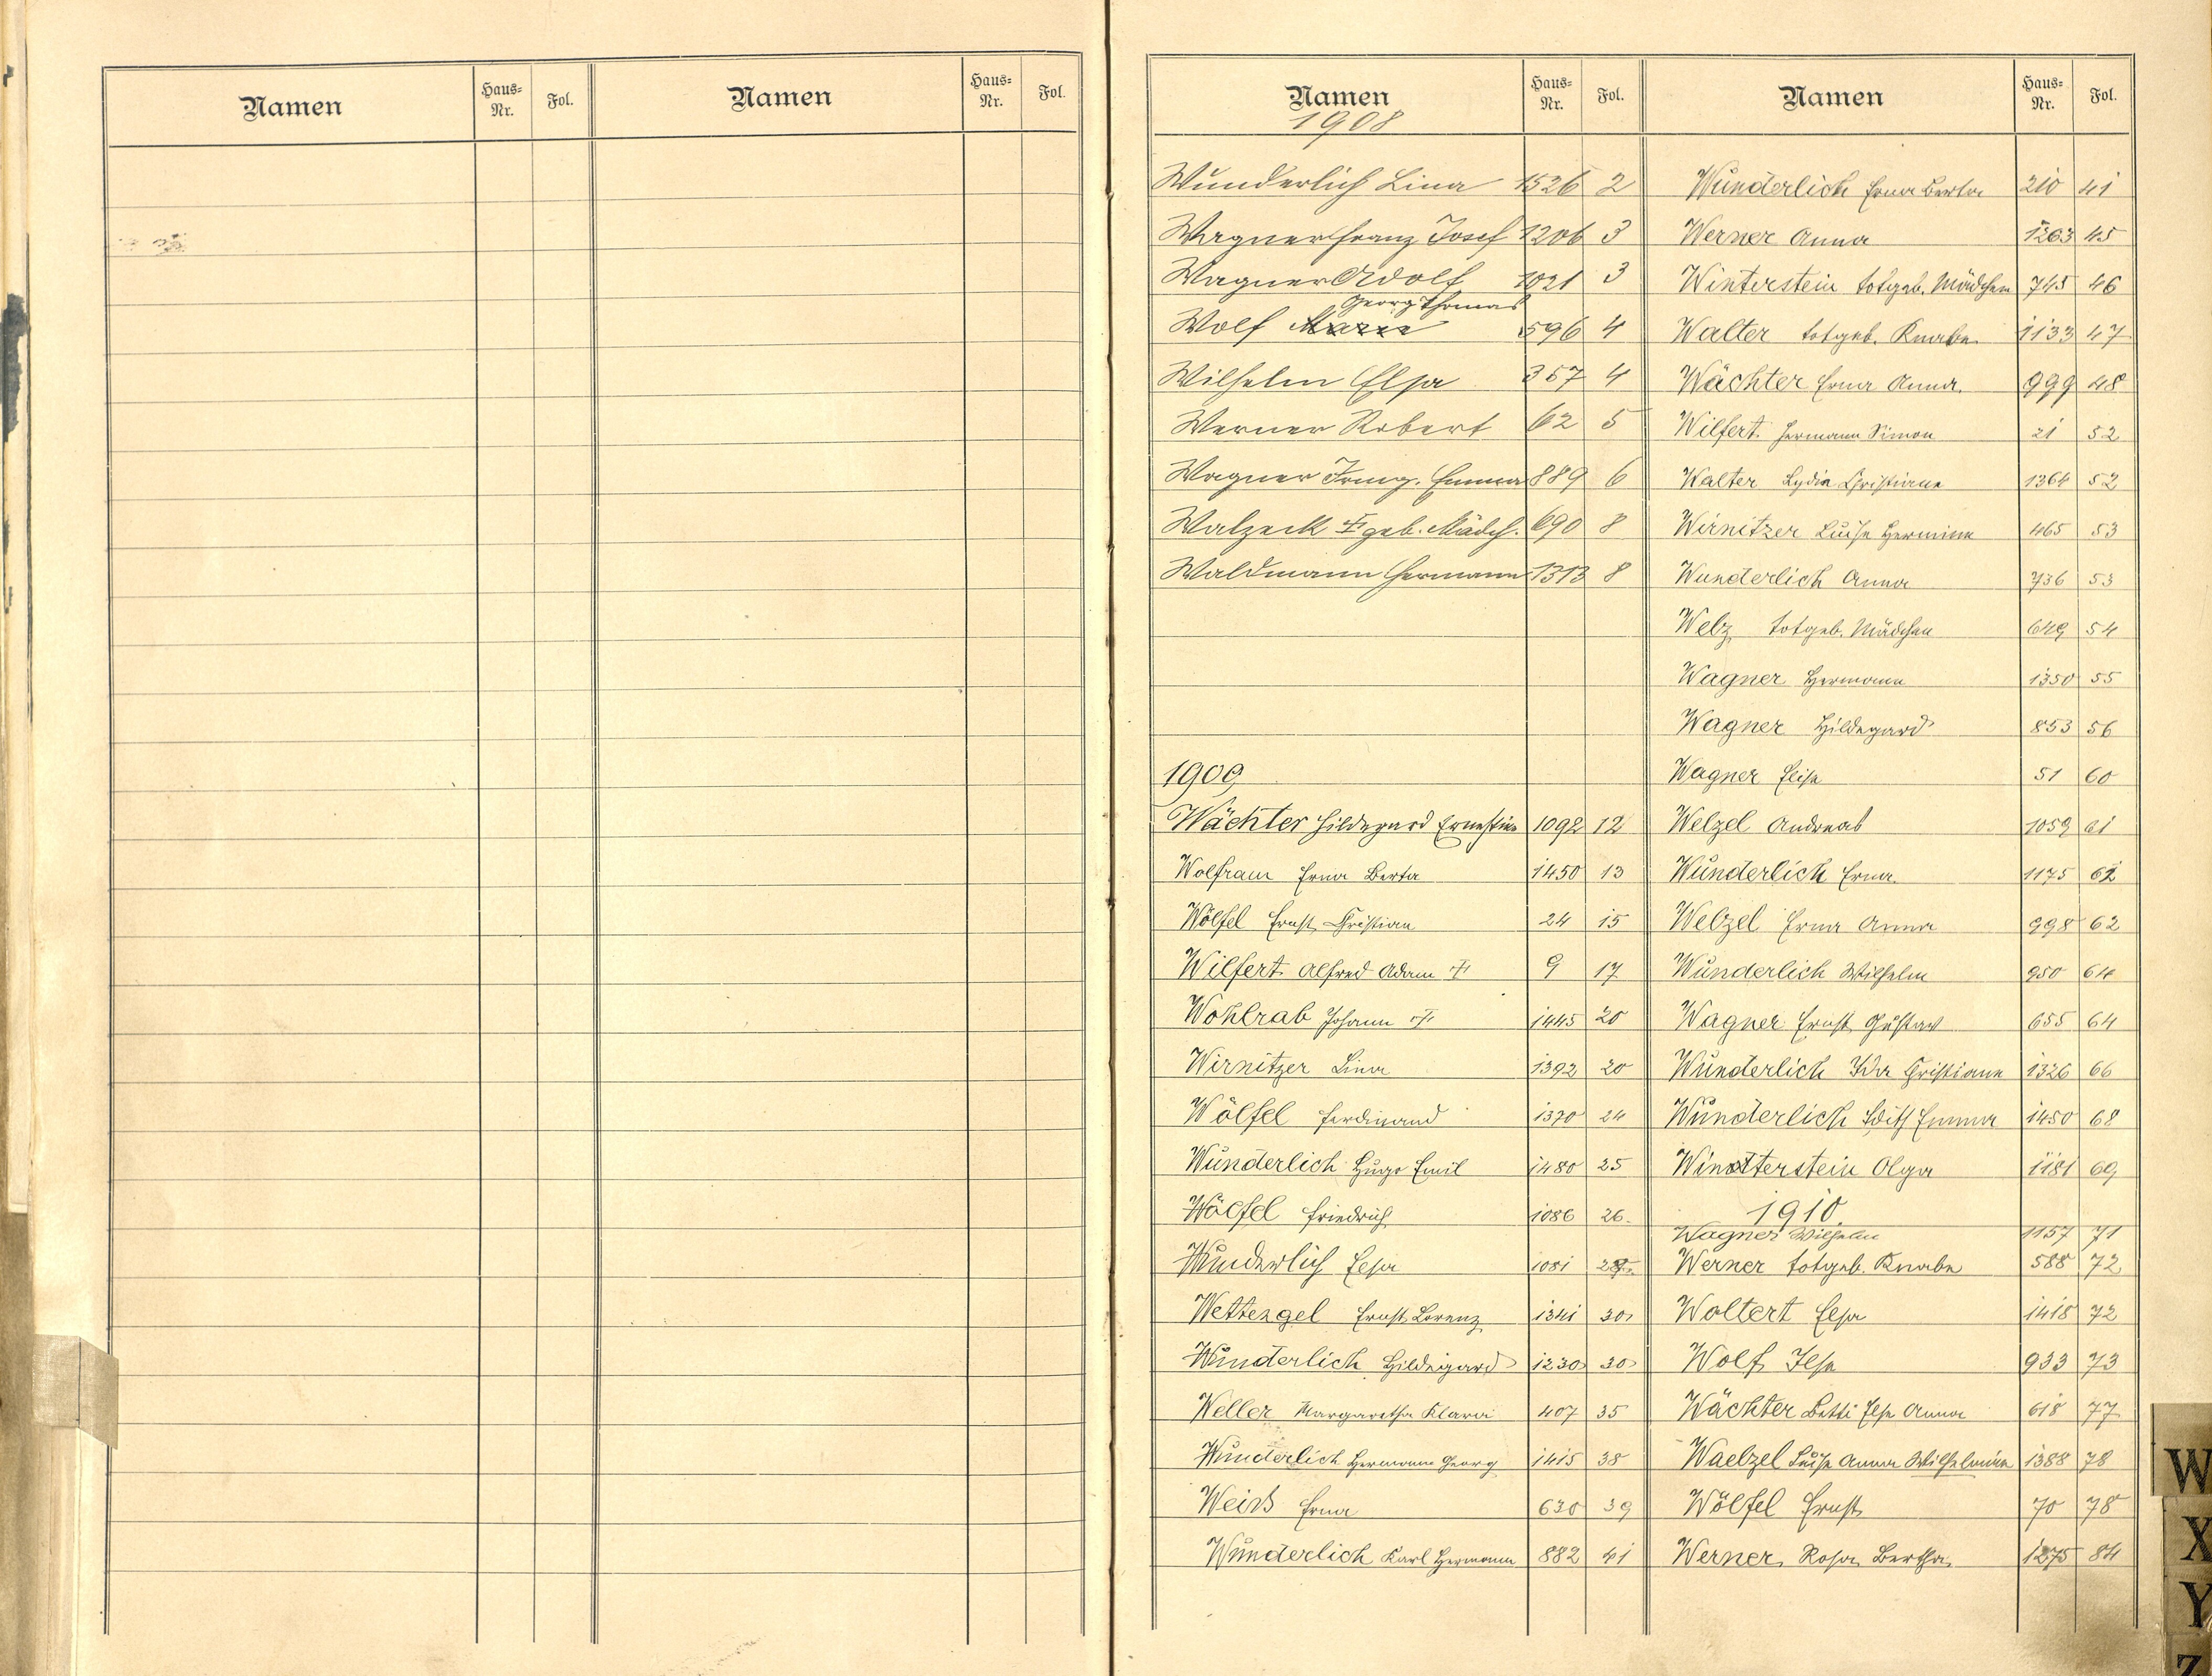 Namen Haus-Nr. Fol. Namen Haus-Nr. Fol.
Namen Haus-Nr. Fol. Namen Haus-Nr. Fol.
1908
Wunderlich Lina 1526 2
Wagner Franz Josef 1206 3
Wagner Adolf 1021 3
Georg Thomas
Wolf Marie 596 4
Wilhelm Elsa 357 4
Werner Robert 62 5
Wagner Irmg. Emma 889 6
Walzeck geb. Mädch. 690 8
Waldmann Hermann 1313 8
1909
Wächter Hildegard Ernestine 1092 12
Wolfram Erna Berta 1450 13
Wölfel Ernst Christian 24 15
Wilfert Alfred Adam 9 17
Wohlrab Johann 1445 20
Wirnitzer Lina 1392 20
Wölfel Ferdinand 1370 24
Wunderlich Hugo Emil 1480 25
Wölfel Friedrich 1086 26
Wunderlich Elsa 1081
Wettengel Ernst Lorenz 1341 30
Wunderlich Hildegard 1230 30
Weller Margaretha Klara 407 35
Wunderlich Hermann Georg 1415 38
Weiß Erna 630 39
Wunderlich Karl Hermann 882 41
Wunderlich Erna Berta 210 41
Werner Anna 1263 45
Winterstein totgeb. Mädchen 745 46
Walter totgeb. Knabe 1133 47
Wächter Erna Anna. 999 48
Wilfert Hermann Simon 21 52
Walter Lydia Christiane 1364 52
Wirnitzer Luise Hermine 465 53
Wunderlich Anna 736 53
Welz totgeb. Mädchen 649 54
Wagner Hermann 1350 55
Wagner Hildegard 853 56
Wagner Elise 51 60
Welzel Andreas 1059 61
Wunderlich Erna 1175 62
Welzel Erna Anna 998 62
Wunderlich Wilhelm 950 64
Wagner Ernst Gustav 655 64
Wunderlich Ida Christiane 1326 66
Wunderlich Edith Emma 1450 68
Winterstein Olga 1181 69
1910.
Wagner Wilhelm 1157 71
Werner totgeb. Knabe 588 72
Woltert Elsa 1418 72
Wolf Ilse 933 73
Wächter Betti Else Anna 618 77
Waelzel Luise Anna Wilhelmine 1388 78
Wölfel Ernst 70 78
Werner Rosa Bertha 1275 84
W
X
Y
Z